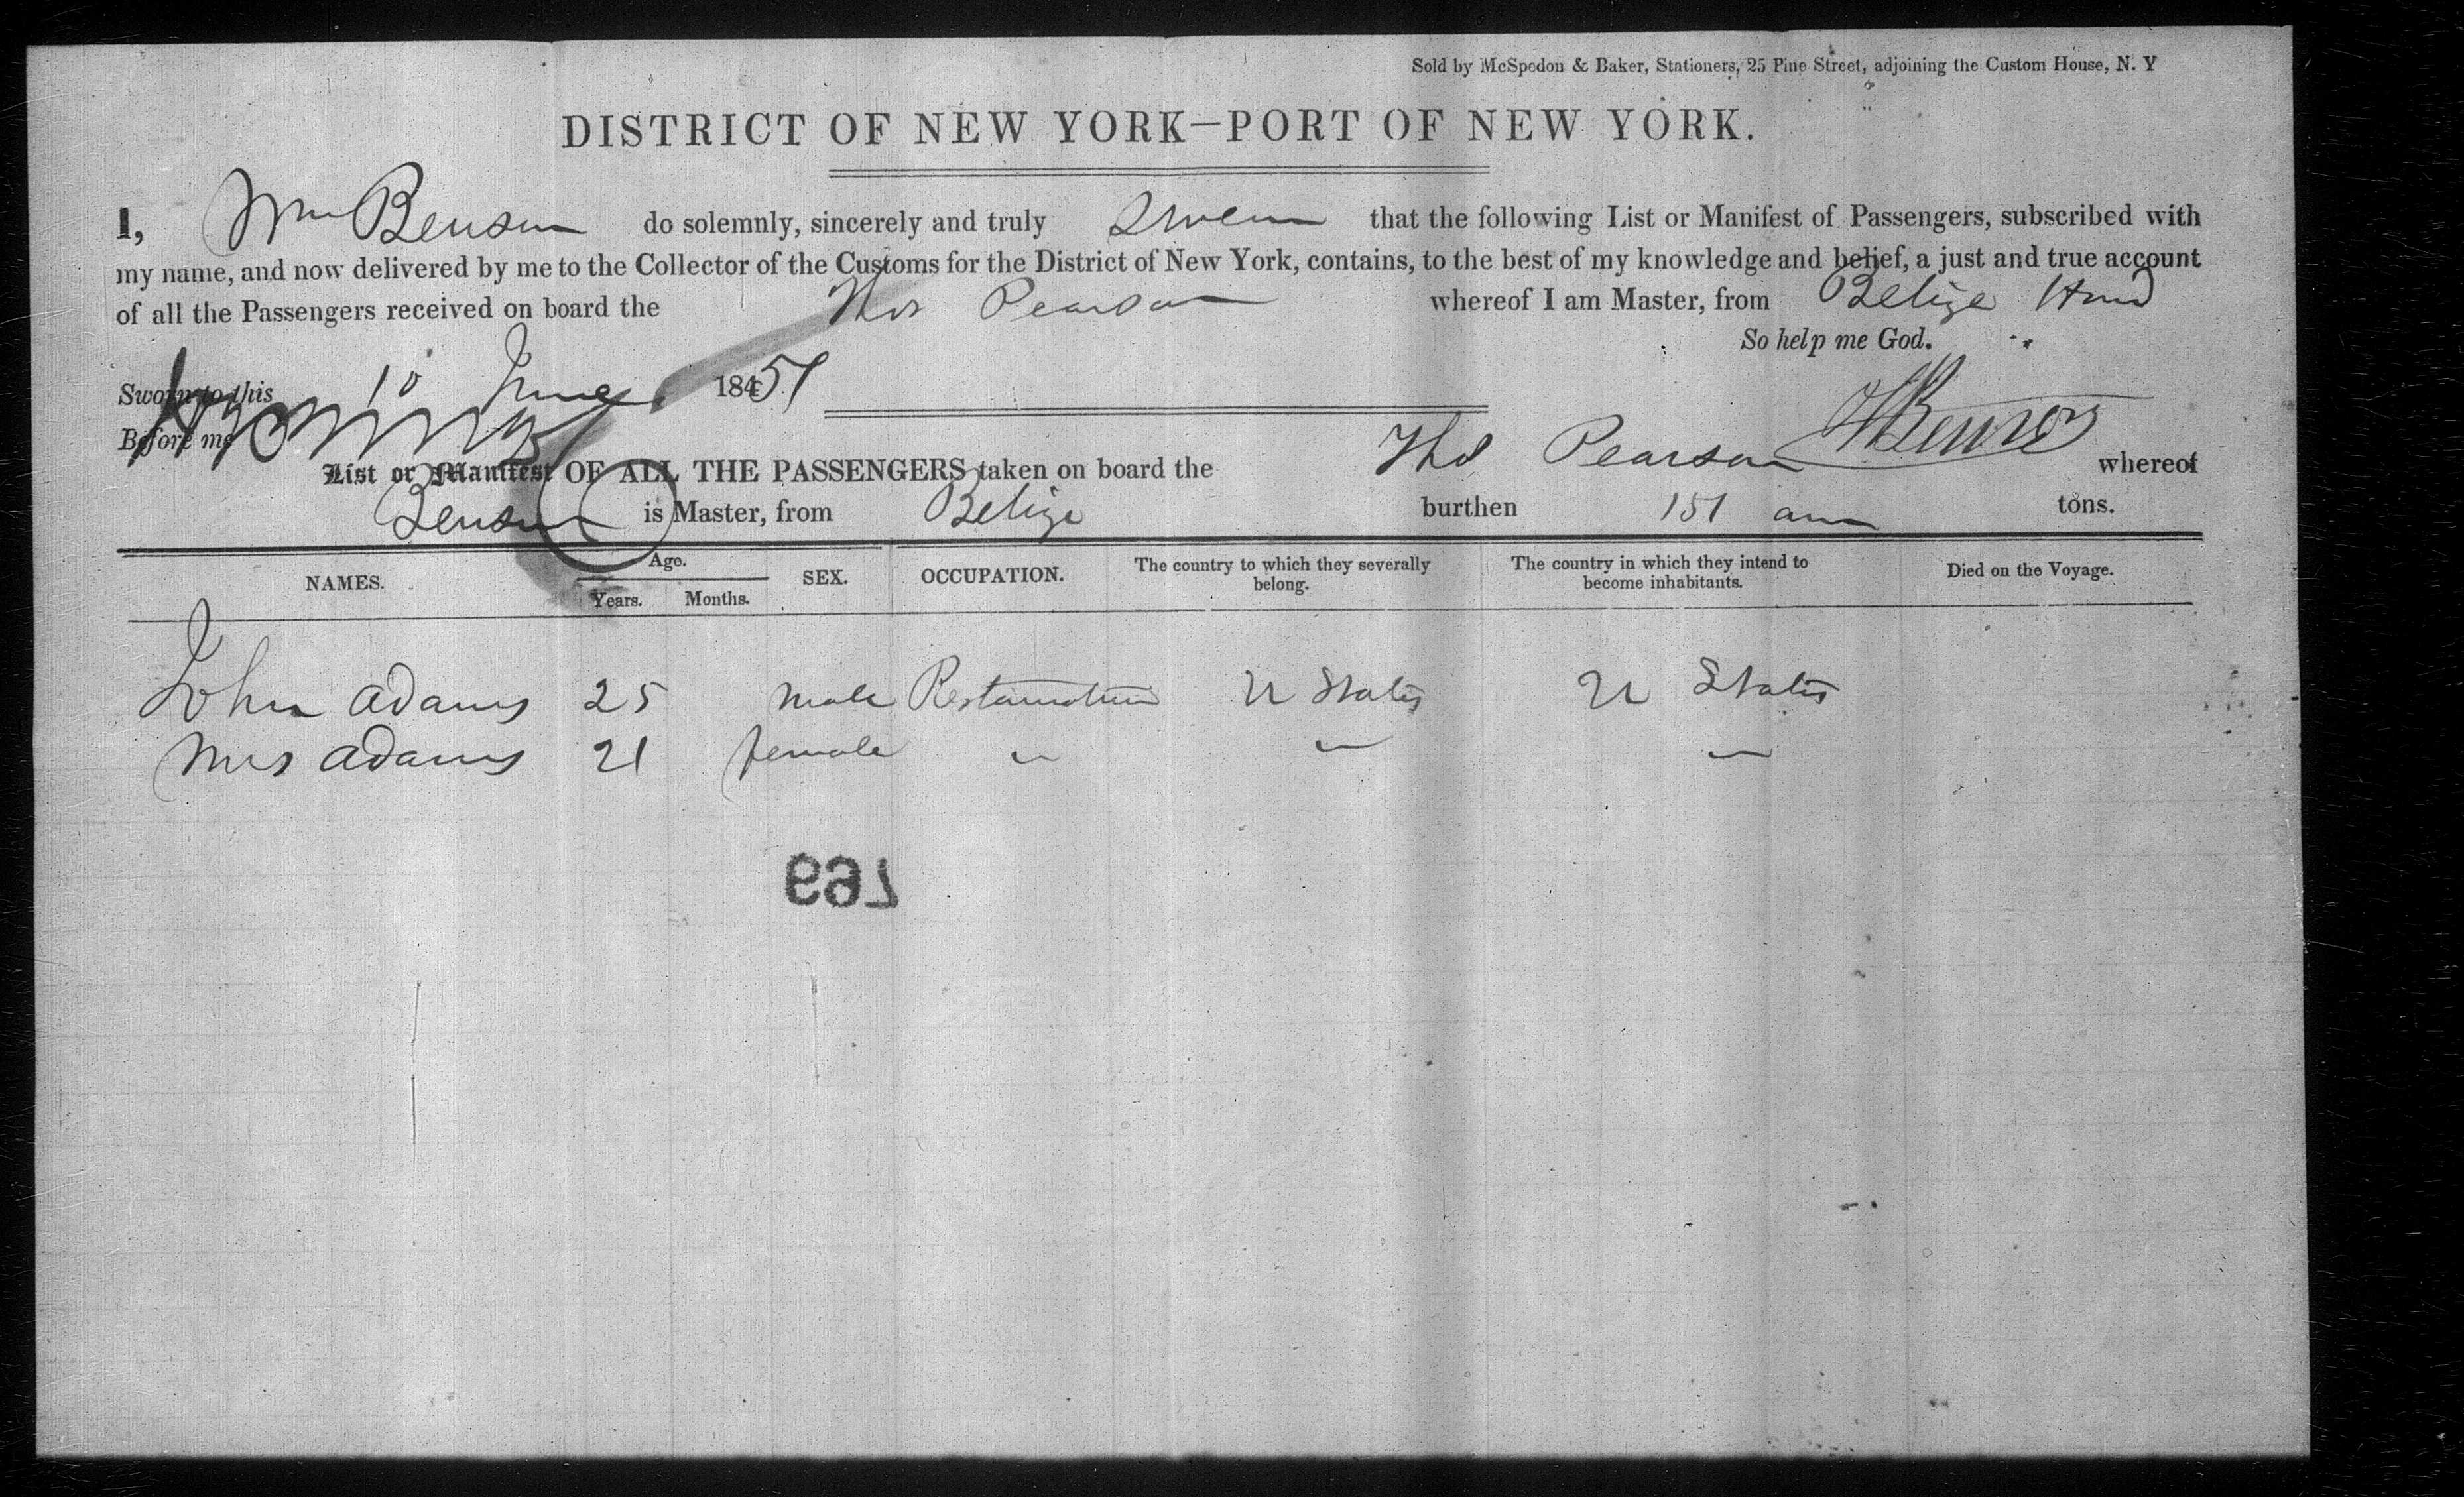 Sold by McSpedon & Baker, Stationers, 25 Pine Street, adjoining the Custom House, N. Y
DISTRICT OF NEW YORK—PORT OF NEW YORK.
I, Wm Benson do solemnly, sincerely and truly Swear that the following List or Manifest of Passengers, subscribed with
my name, and now delivered by me to the Collector of the Customs for the District of New York, contains, to the best of my knowledge and belief, a just and true account
of all the Passengers received on board the Thos Pearson whereof I am Master, from Belize Hond
So help me God.
Sworn to this 10 June 18451
Before me
WBenson
List or Manifest OF ALL THE PASSENGERS taken on board the Thos Pearson whereof
Benson is Master, from Belize burthen 151 tons.
NAMES. Age. Years. Months. SEX. OCCUPATION. The country to which they severally belong. The country in which they intend to become inhabitants. Died on the Voyage.
John Adams 25 male U States U States
Mrs Adams 21 female " " "
769